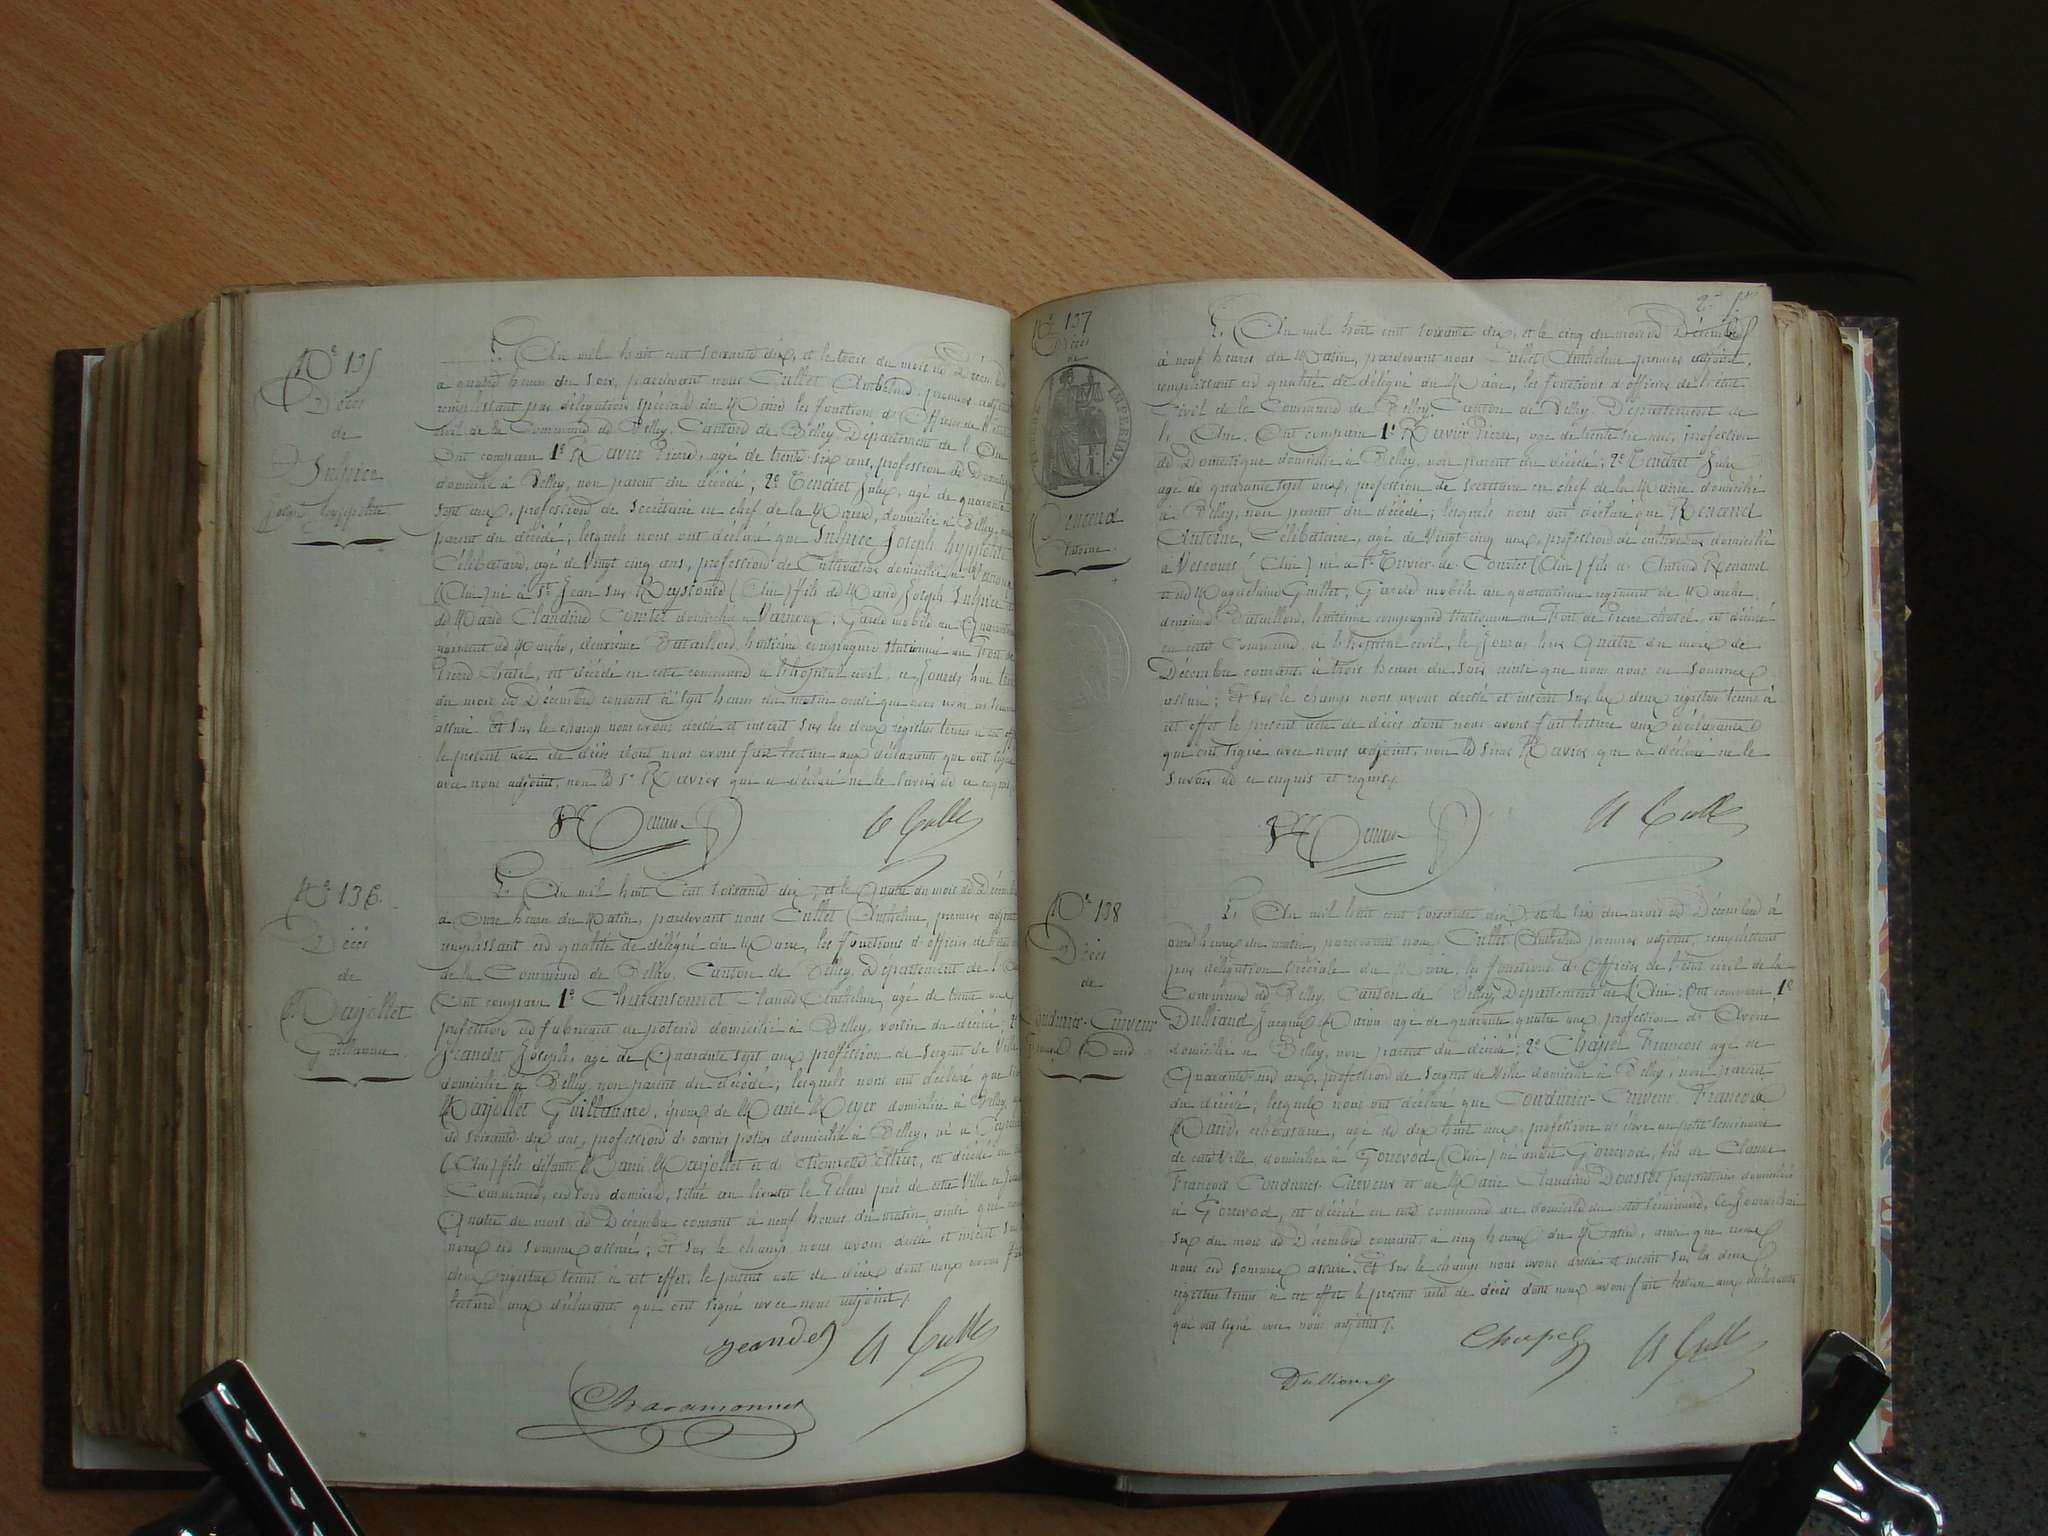 N° 135
Décès
de
Sulpice
Joseph hyppolite
L'An mil huit cent soixante dix, et le trois du mois de Décembre
à quatre heures du soir, pardevant nous Cullet Anthelme premier adjoint
remplissant par délégation spéciale du Maire les fonctions d'Officier de l'état
civil de la Commune de Belley, Canton de Belley, Département de l'Ain
Ont comparu 1° Ravier Pierre, agé de trente six ans, profession de Domestique
domicilié à Belley, non parent du décédé, 2° Tendret Jules, agé de quarante
sept ans, profession de secrétaire en chef de la Mairie, domicilié à Belley, non
parent du décédé; lesquels nous ont déclaré que Sulpice Joseph hyppolite
Célibataire, agé de Vingt cinq ans, profession de Cultivateur domicilié à
(Ain) né à St Jean sur Reyssouze (Ain) fils de Joseph Sulpice
de Marie Claudine domicilié à Garde mobile au Quarantième
régiment de Marche, deuxième Bataillon, huitième compagnie stationnée au Fort de
Pierre Chatel, est décédé en cette commune à l'hôpital civil, ce jourd'hui trois
du mois de Décembre courant à sept heures du matin ainsi que nous nous en sommes
assuré. Et sur le champ nous avons dressé et inscrit sur les deux registres tenus à cet effet
le présent acte de décès dont nous avons fait lecture aux déclarants qui ont signé
avec nous adjoint, non le Sr Ravier qui a déclaré ne le savoir de ce requis
A Cullet
N° 136
Décès
de
Marjollet
Guillaume
L'An mil huit Cent soixante dix, et le Quatre du mois de Décembre
à onze heures du Matin, pardevant nous Cullet Anthelme, premier adjoint
remplissant en qualité de délégué du Maire, les fonctions d'officier de l'état
de la Commune de Belley, Canton de Belley, Département de l'Ain
Ont comparu 1° Claude Anthelme, agé de trente ans
profession de fabricant de poterie domicilié à Belley, voisin du décédé; 2°
Jeandet Joseph, agé de Quarante sept ans profession de sergent de Ville
domicilié à Belley, non parent du décédé, lesquels nous ont déclaré que
Marjollet Guillaume, époux de Marie Meyer domiciliée à Belley,
de soixante dix ans, profession d'ouvrier potier domicilié à Belley, né à
(Ain) fils défunts Marjollet et d' est décédé en
Commune, en son domicile, situé au lieu dit le près de cette Ville ce
Quatre du mois de Décembre courant à neuf heures du matin, ainsi que nous
nous en sommes assuré; Et sur le champ nous avons dressé et inscrit sur
deux registres tenus à cet effet, le présent acte de décès dont nous avons fait
lecture aux déclarants qui ont signé avec nous adjoint./.
Jeandet A Cullet
N° 137
Décès
de
TIMBRE IMPERIAL
Renaud
Antoine
L'An mil huit cent soixante dix, et le cinq du mois de Décembre
à neuf heures du Matin, pardevant nous Cullet Anthelme premier adjoint
remplissant en qualité de délégué du Maire, les fonctions d'officier de l'état
Civil de la Commune de Belley Canton de Belley, Département de
l'Ain. Ont comparu 1° Ravier Pierre, agé de trente six ans, profession
de Domestique domicilié à Belley, non parent du décédé; 2° Tendret Jules
agé de quarante sept ans, profession de secrétaire en chef de la Mairie domicilié
à Belley, non parent du décédé; lesquels nous ont déclaré que Renaud
Antoine, Célibataire, agé de Vingt cinq ans, profession de cultivateur domicilié
à Vescours (Ain) né à St Trivier de Courtes (Ain) fils de Renaud
et de Magdelaine Guillet, Garde mobile au quarantième régiment de Marche,
deuxième Bataillon, huitième compagnie stationnée au Fort de Pierre chatel, est décédé
en cette Commune, à l'hôpital civil, le jour d'hier Quatre du mois de
Décembre courant, à trois heures du soir ainsi que nous nous en sommes
assuré; Et sur le champ nous avons dressé et inscrit sur les deux registres tenus à
cet effet le présent acte de décès dont nous avons fait lecture aux déclarants
qui ont signé avec nous adjoint, non le sieur Ravier qui a déclaré ne le
savoir de ce enquis et requis/.
A Cullet
N° 138
Décès
de
Coudurier-Curveur
L'An mil huit cent soixante dix, et le six du mois de Décembre à
onze heures du matin, pardevant nous Cullet Anthelme premier adjoint, remplissant
par délégation spéciale du Maire, les fonctions d'Officier de l'état civil de la
Commune de Belley, Canton de Belley, Département de l'Ain: Ont comparu 1°
Dulliand Jacques Marie agé de quarante quatre ans profession d'
domicilié à Belley, non parent du décédé; 2° Chapel François agé de
Quarante ans, profession de Sergent de Ville domicilié à Belley, non parent
du décédé; lesquels nous ont déclaré que Coudurier-Curveur François
célibataire, agé de dix huit ans, profession d'élève au petit séminaire
de cette Ville domicilié à Gorrevod (Ain) né audit Gorrevod, fils de Claude
François Coudurier-Curveur et de Marie Claudine propriétaires domiciliés
à Gorrevod, est décédé en cette commune au domicile du petit séminaire, ce jourd'hui
six du mois de Décembre courant, à cinq heures du Matin, ainsi que nous
nous en sommes assuré. Et sur le champ nous avons dressé et inscrit sur les deux
registres tenus à cet effet le présent acte de décès dont nous avons fait lecture aux déclarants
qui ont signé avec nous adjoint/.
Chapel A Cullet
Dulliand